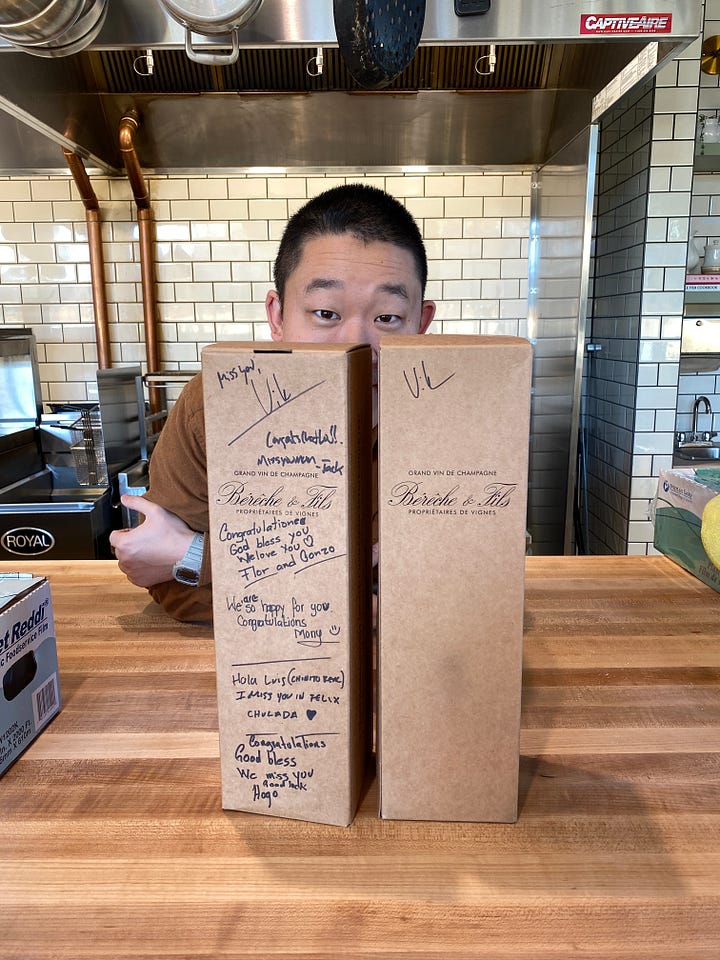 CAPTIVEAIRE
Miss you,
Vik
Congrats Football.
Miss you man
-Jack
GRAND VIN DE CHAMPAGNE
Bérêche & Fils
PROPRIÉTAIRES DE VIGNES
Congratulations
God bless you
We love you
Flor and Gonzo
We are so happy for you.
Congratulations
Mony
Hola Luis (CHINITO REAL)
I MISS YOU IN FELIX
CHULADA
Congratulations
Good bless
We miss you
Good luck
Hogo
Vik
GRAND VIN DE CHAMPAGNE
Bérêche & Fils
PROPRIÉTAIRES DE VIGNES
ROYAL
et Reddi
c Foodservice Film